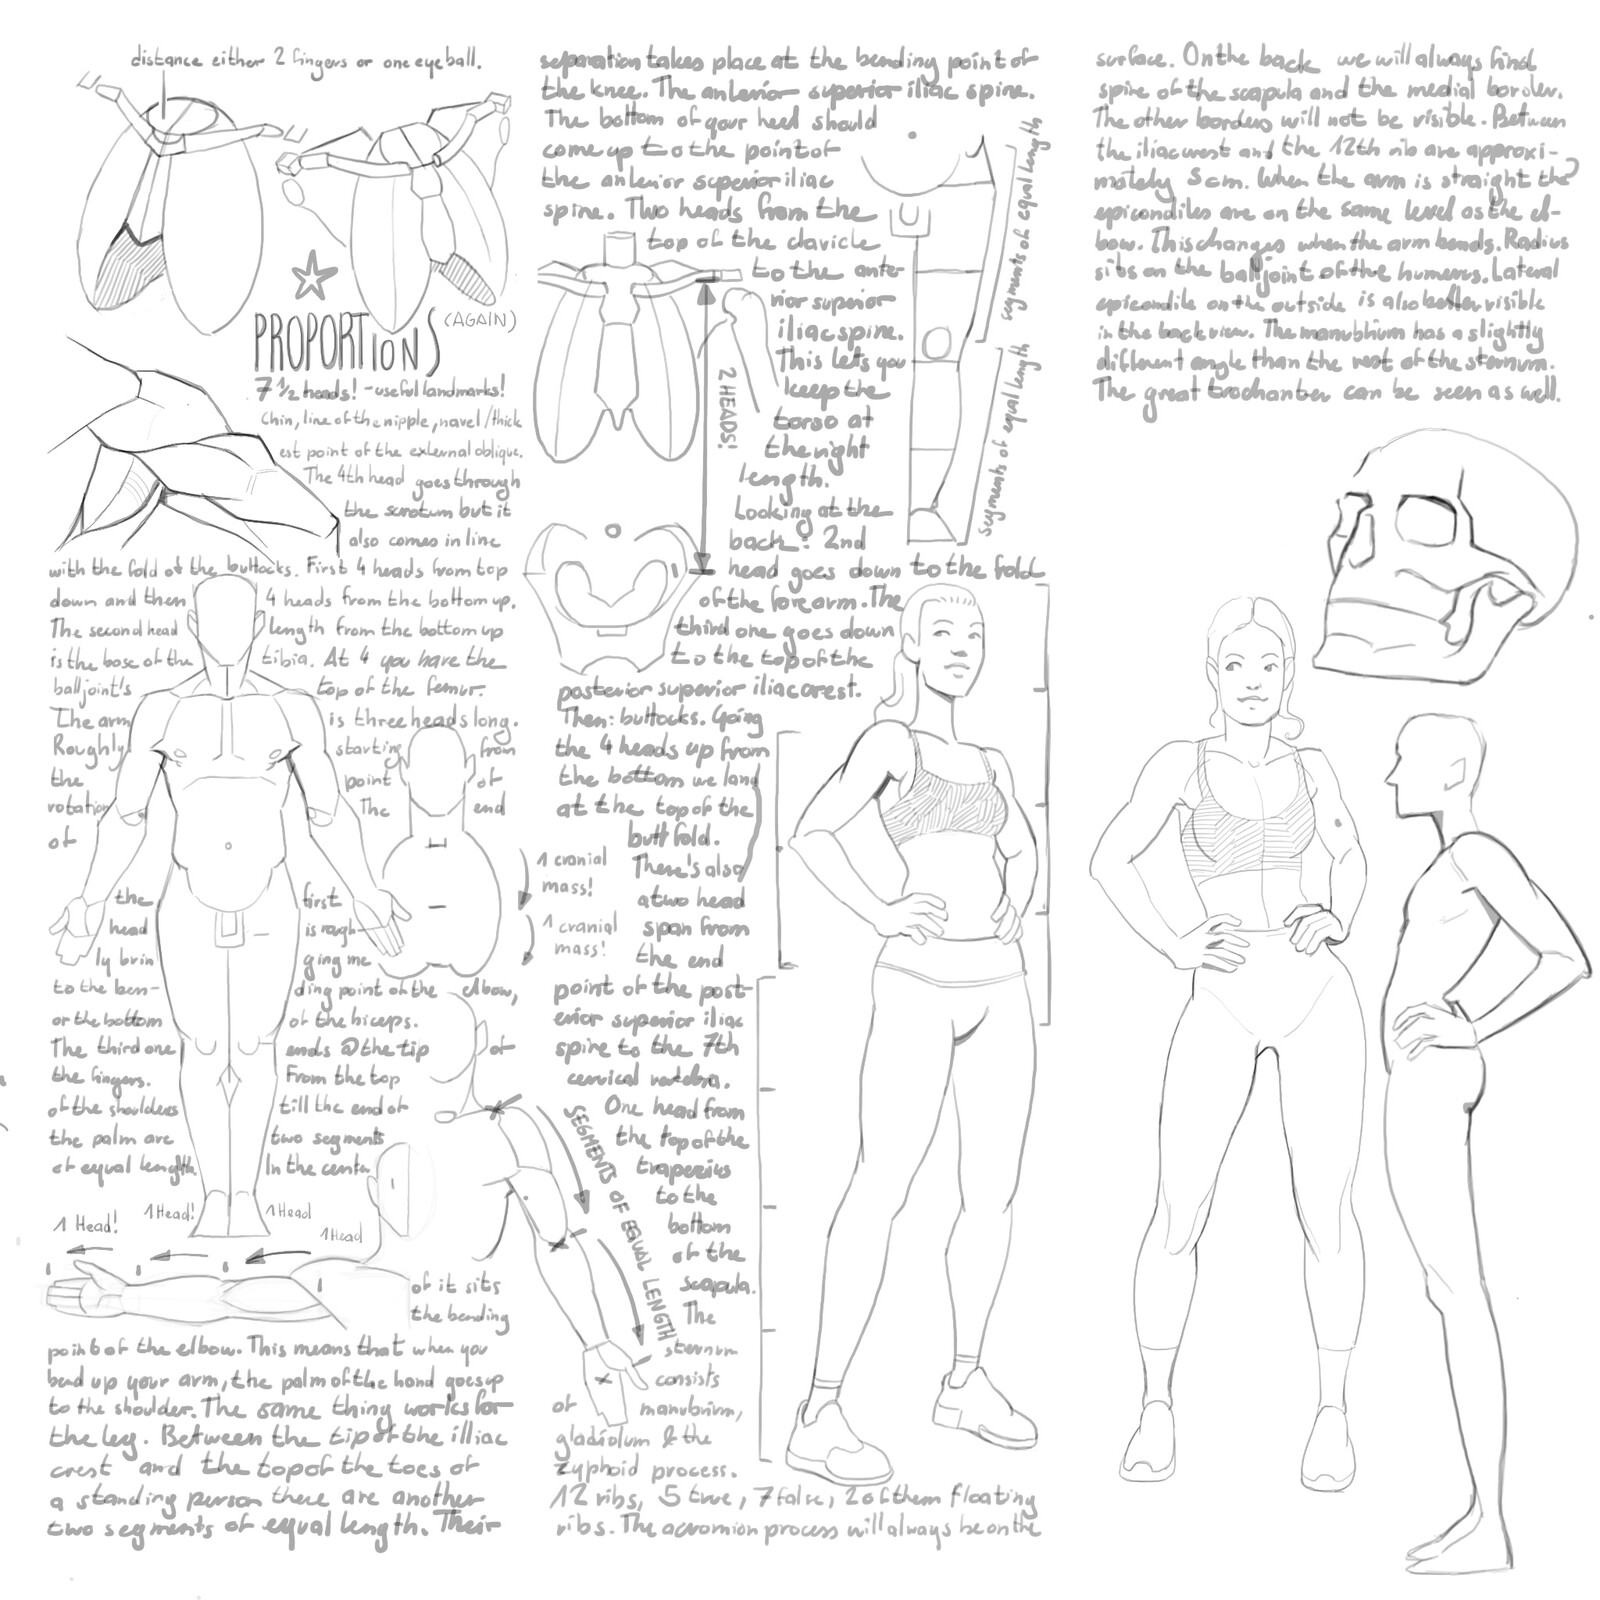 distance either 2 fingers or one eyeball.
PROPORTIONS (AGAIN)
7 1/2 heads! - useful landmarks!
Chin, line of the nipple, navel / thick
est point of the external oblique.
The 4th head goes through
the scrotum but it
also comes in line
with the fold of the buttocks. First 4 heads from top
down and then 4 heads from the bottom up.
The second head length from the bottom up
is the base of the tibia. At 4 you have the
balljoint's top of the femur.
The arm is three heads long.
Roughly starting from
the point of
rotation The end
of
the first
head is rough-
ly brin ging me
to the ben- ding point of the elbow,
or the bottom of the biceps.
The third one ends @ the tip of
the fingers. From the top
of the shoulders till the end of
the palm are two segments
of equal length. In the center
1 Head! 1 Head! 1 Head 1 Head
of it sits
the bending
point of the elbow. This means that when you
bend up your arm, the palm of the hand goes up
to the shoulder. The same thing works for
the leg. Between the tip of the illiac
crest and the top of the toes of
a standing person there are another
two segments of equal length. Their
1 cranial
mass!
1 cranial
mass!
SEGMENTS OF EQUAL LENGTH
separation takes place at the bending point of
the knee. The anterior superior iliac spine.
The bottom of your heel should
come up to the point of
the anterior superior iliac
spine. Two heads from the
top of the clavicle
to the ante-
rior superior
iliac spine.
This lets you
keep the
torso at
the right
length.
Looking at the
back: 2nd
head goes down to the fold
of the forearm. The
third one goes down
to the top of the
posterior superior iliac crest.
Then: buttocks. Going
the 4 heads up from
the bottom we land
at the top of the
butt fold.
There's also
a two head
span from
the end
point of the post-
erior superior iliac
spine to the 7th
cervical vertebra.
One head from
the top of the
trapezius
to the
bottom
of the
scapula.
The
sternum
consists
of manubrium,
gladiolum & the
zyphoid process.
12 ribs, 5 true, 7 false, 2 of them floating
ribs. The acromion process will always be on the
2 HEADS!
segments of equal length
segments of equal length
segments of equal length
surface. On the back we will always find
spine of the scapula and the medial border.
The other borders will not be visible. Between
the iliac crest and the 12th rib are approxi-
mately 5 cm. When the arm is straight the
epicondiles are on the same level as the el-
bow. This changes when the arm bends. Radius
sits on the balljoint of the humerus. Lateral
epicondile on the outside is also better visible
in the back view. The manubrium has a slightly
different angle than the rest of the sternum.
The great trochanter can be seen as well.